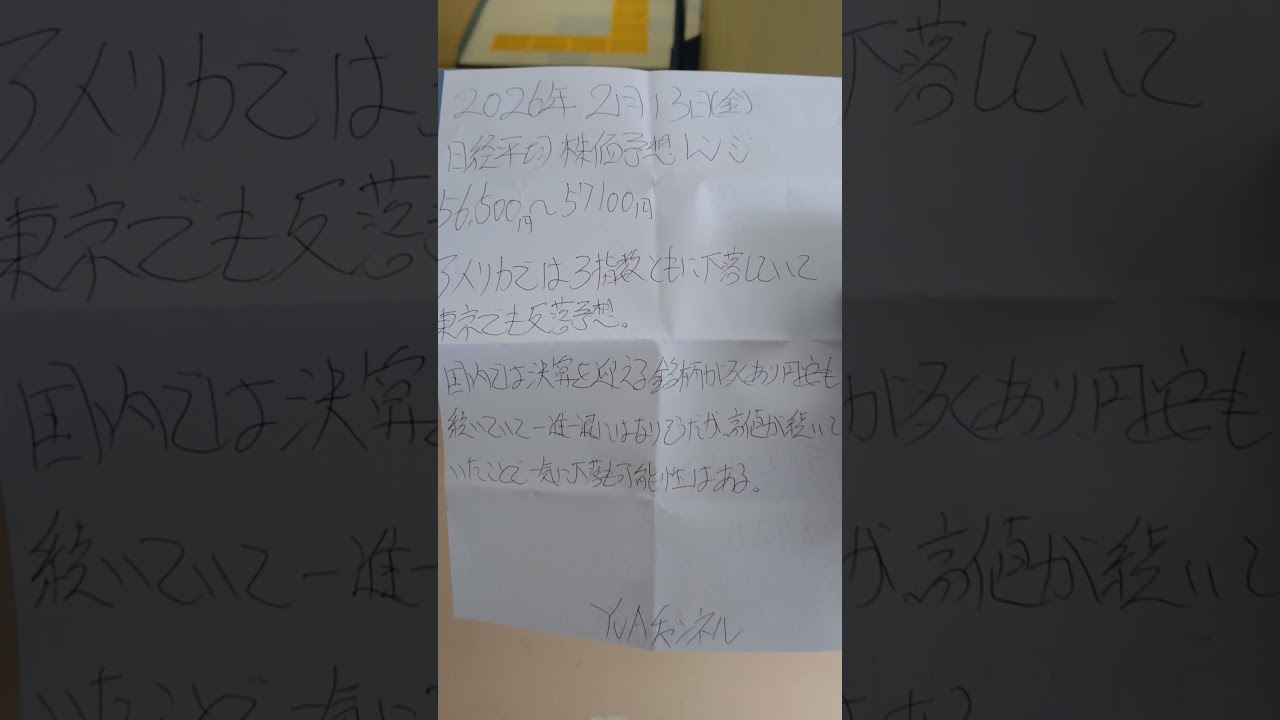 2026年 2日13日(金)
日経平均株価予想レンジ
56,500円〜57100円
アメリカでは3指数ともに下落していて
東京でも反落予想。
国内では決算を迎える銘柄が多くあり、円安も
続いていて一進一退にはなりそうだが、高値が続いて
いたことで一気に下落も可能性はある。
YUAチャンネル